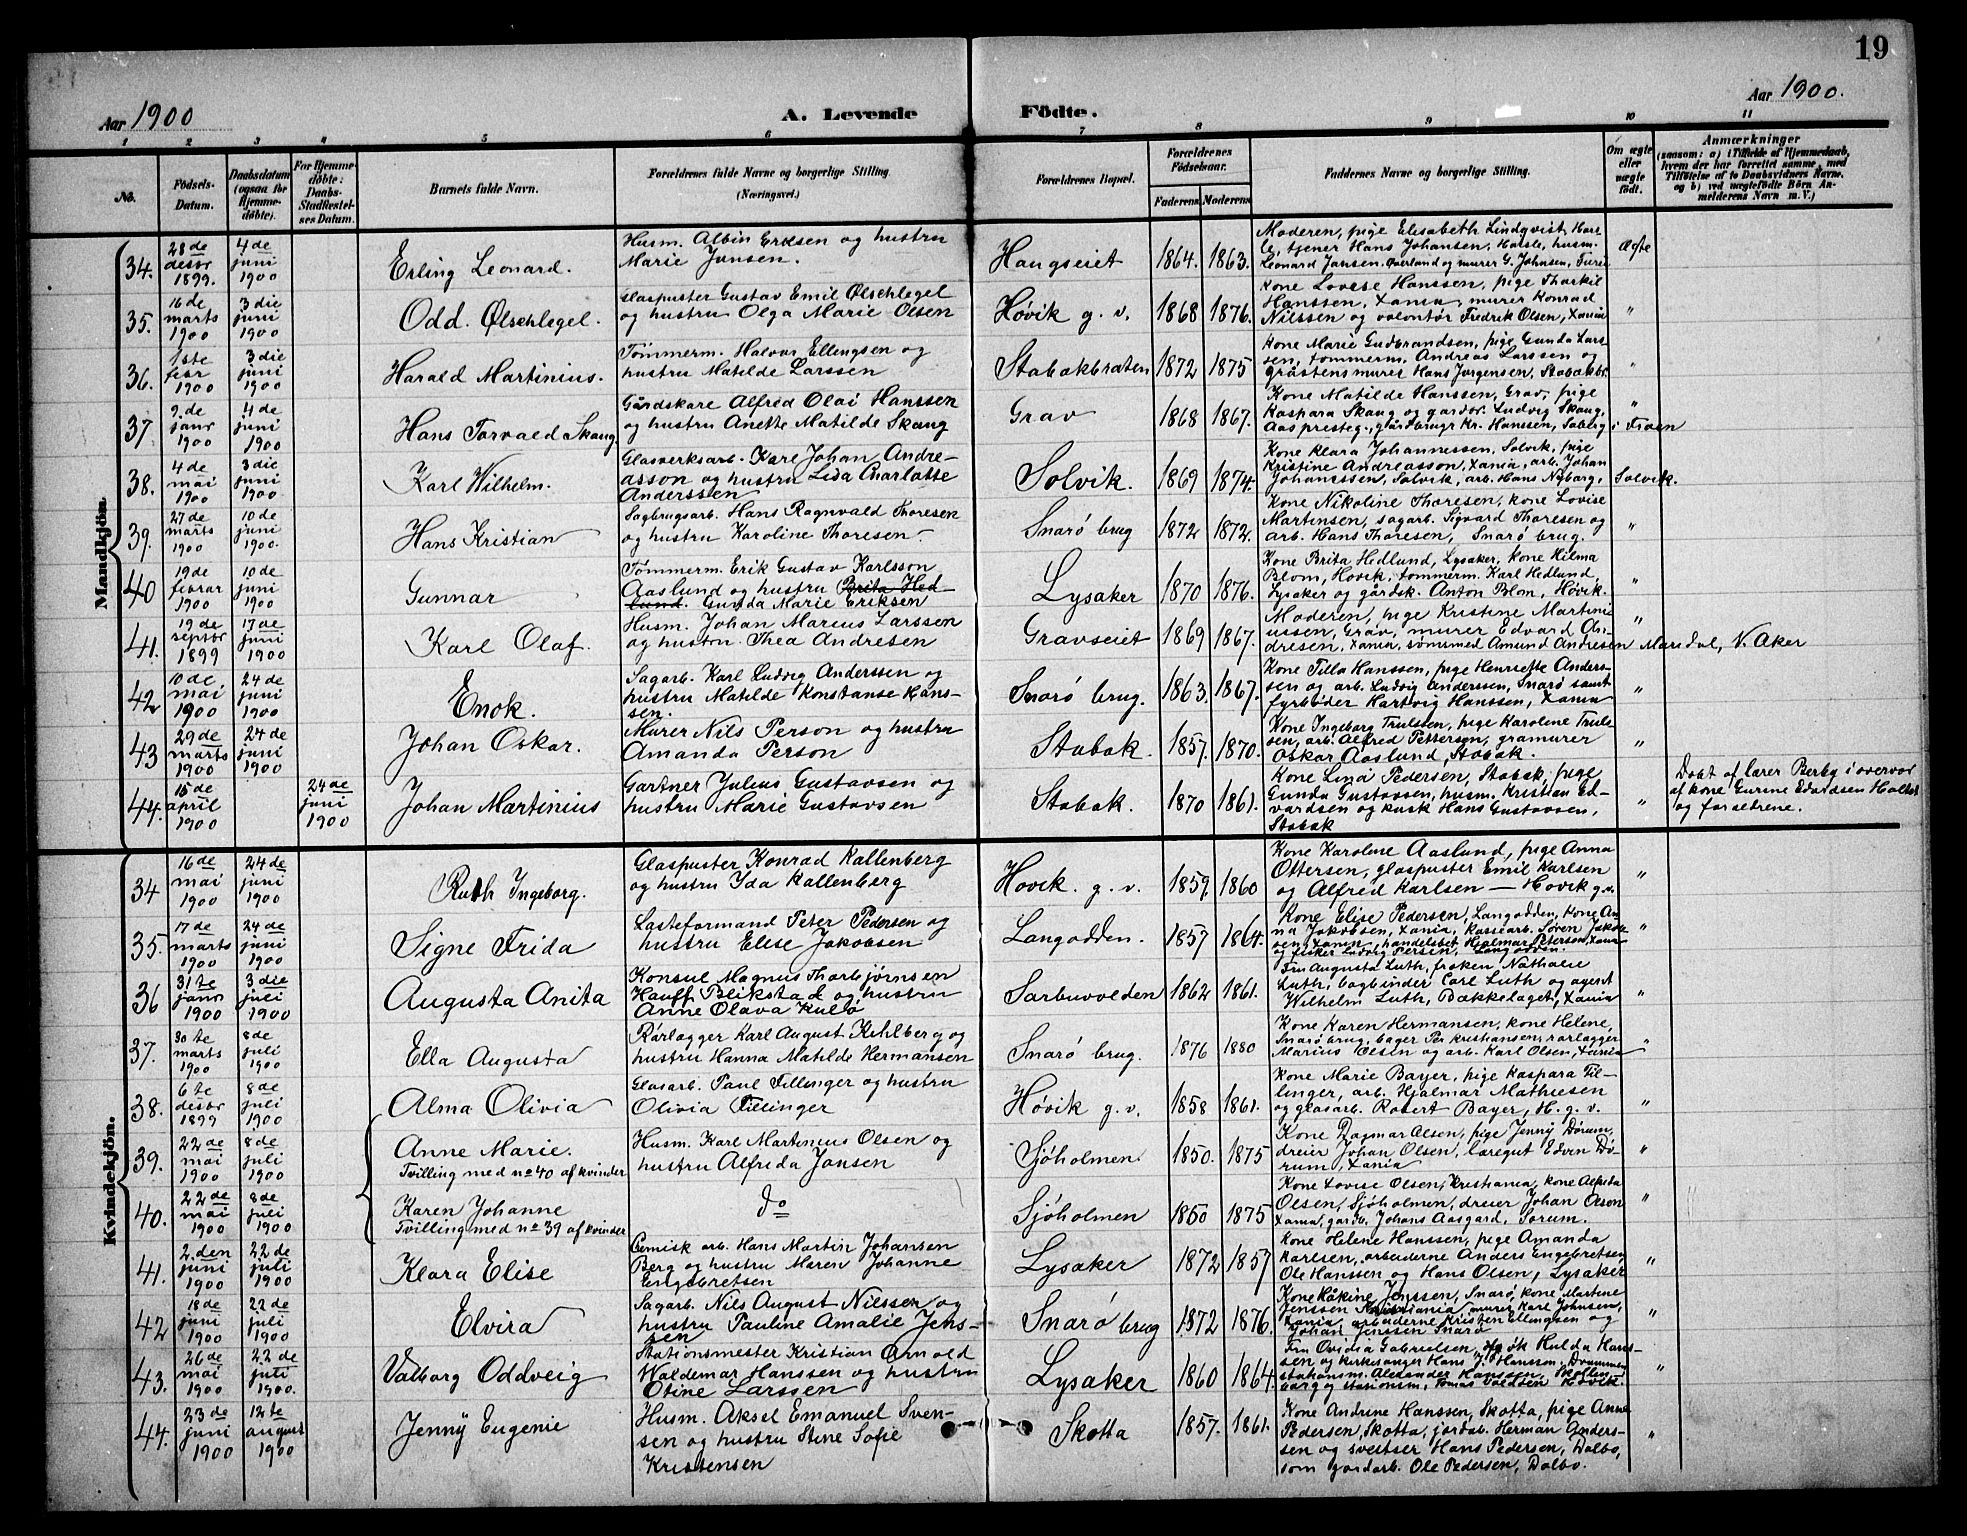 19
Aar 1900
A. Levende Födte.
Aar 1900.
1 2 3 4 5 6 7 8 9 10 11
No.
Födsels-
Datum.
Daabsdatum
(ogsaa for
Hjemme-
döbte).
For Hjemme-
döbte:
Daabs-
Stadfæstel-
ses Datum.
Barnets fulde Navn.
Forældrenes fulde Navne og borgerlige Stilling
(Næringsvei.)
Forældrenes Bopæl.
Forældrenes
Födselsaar.
Faderens Moderens
Faddernes Navne og borgerlige Stilling.
Om ægte
eller
uægte
født.
Anmærkninger
(saasom: a) i Tilfælde af Hjemmedaab,
hvem der har forrettet samme, med
Tilföielse af to Daabsvidners Navne,
og b) ved uægtefödte Börn An-
melderens Navn m.V.)
Mandkjön
34.
28 de
desbr
1899.
4 de
juni
1900
Erling Leonard.
Husm. Albin Eriksen og hustru
Marie Jansen.
Haugseiet
1864. 1863.
Moderen, pige Elisabeth Lindqvist, Has-
le, tjener Hans Johansen, Hasle, husm.
Leonard Jansen, Øverland og murer G. Johnsen, Furu
Ægte
35.
16 de
marts
1900
3 die
juni
1900
Odd. Ølschlegel.
Glaspuster Gustav Emil Ølschlegel
og hustru Olga Marie Olsen
Høvik g. v.
1868 1876.
Kone Lovise Hanssen, pige Thorkil
Hanssen, Xania, murer Konrad
Nilssen og volontør Fredrik Olsen, Xania
"
36.
1ste
febr
1900
3 die
juni
1900
Harald Martinius.
Tømmerm. Halvor Ellingsen og
hustru Matilde Larssen
Stabakbraten
1872 1875
Kone Marie Gudbrandsen, pige Gunda Lars-
sen, tømmerm. Andreas Larssen og
gråstensmurer Hans Jørgensen, Stabakbr.
"
37.
9. de
janr
1900
4 de
juni
1900
Hans Torvald Skaug.
Gårdskare Alfred Olai Hanssen
og hustru Anette Matilde Skaug
Grav
1868 1867.
Kone Matilde Hanssen, Grav, pige
Kaspara Skaug og gårdbr. Ludvig Skaug,
Aas presteg., gårdbrugr Kr. Hanssen, Søberg i Tiven
"
38.
4 de
mai
1900
3 die
juni
1900.
Karl Wilhelm.
Glasverksarb. Karl Johan Andre-
asson og hustru Lida Charlotte
Anderssen
Solvik.
1869 1874.
Kone Klara Johannessen, Solvik, pige
Kristine Andreasson, Xania, arb. Johan
Johanssen, Solvik, arb. Hans Nyborg, Solvik.
39.
27 de
marts
1900
10 de
juni
1900.
Hans Kristian
Sagbrugsarb. Hans Ragnvald Thoresen
og hustru Karoline Thoresen.
Snarø brug
1872 1872.
Kone Nikoline Thoresen, kone Lovise
Martinsen, sagarb. Sigvard Thoresen og
arb. Hans Thoresen, Snarø brug.
"
40
19 de
februar
1900
10 de
juni
1900
Gunnar
Tømmerm. Erik Gustav Karlsson
Aaslund og hustru Brita Hed-
lund. Gunda Marie Eriksen
Lysaker
1870 1876.
Kone Brita Hedlund, Lysaker, kone Hilma
Blom, Høvik, tømmerm. Karl Hedlund,
Lysaker og gårdsk. Anton Blom, Høvik.
"
41.
19 de
septbr
1899
17 de
juni
1900
Karl Olaf.
Husm. Johan Marius Larssen
og hustru. Thea Andresen
Gravseiet
1869 1867.
Moderen, pige Kristine Martini-
ussen, Grav, murer Edvard An-
dresen, Xania, sømsmed Amund Andresen Maridal, V. Aker
"
42
10 de
mai
1900
24 de
juni
1900
Enok.
Sagarb. Karl Ludvig Anderssen og
hustru Matilde Konstanse Hans-
sen.
Snarø brug.
1863. 1867.
Kone Tilla Hanssen, pige Henriette Anders-
sen og arb. Ludvig Anderssen, Snarø samt
fyrbøder Hartvig Hanssen, Xania
"
43
29 de
marts
1900
24 de
juni
1900
Johan Oskar.
Murer Nils Person og hustru
Amanda Person
Stabak.
1857. 1870.
Kone Ingeborg Trulssen, pige Karolene Truls-
sen, arb. Alfred Pettersen, gramurer
Oskar Aaslund, Stabak.
"
44.
15 de
april
1900
24 de
juni
1900
Johan Martinius
Gartner Julius Gustavsen og
hustru Marie Gustavsen
Stabak.
1870 1861.
Kone Lina Pedersen, Stabak, pige
Gunda Gustavssen, husm. Kristian Ed-
vardsen og kusk Hans Gustavsen,
Stabak
"
Døbt af lærer Berby i overvær
af kone Gurine Edvardsen Holtet
og forældrene.
Kvindekjön.
34
16 de
mai
1900
24 de
juni
1900
Ruth Ingeborg.
Glaspuster Konrad Kallenberg
og hustru Ida Kallenberg
Høvik. g. v.
1859. 1860
Kone Karolene Aaslund, pige Anna
Ottersen, glaspuster Emil Karlsen
og Alfred Karlsen — Høvik g.v.
"
35.
17 de
marts
1900
24 de
juni
1900
Signe Frida
Lasteformand Peter Pedersen og
hustru Elise Jakobsen
Langodden.
1857 1864.
Kone Elise Pedersen, Langodden, kone An-
na Jakobsen, Xania, kassearb. Søren Jakob-
sen, Xania, handelsbet Hjalmar Petersen, Xania
og fisker Ludvig Persen, Langodden.
"
36
31 te
janr
1900
3 die
juli
1900
Augusta Anita
Konsul Magnus Thorbjørnsen
Hauff Blikstad og hustru
Anne Olava Kulb
Sarbuvolden
1862 1861.
Fru Augusta Luth, frøken Nathalie
Luth, bogbinder Carl Luth og agent
Wilhelm Luth, Bækkelaget, Xania
"
37.
30 te
marts
1900
8 de
juli
1900
Ella Augusta
Rørlægger Karl August Kihlberg og
hustru Hanna Matilde Hermansen
Snarø brug.
1876 1880
Kone Karen Hermansen, kone Helene,
Snarø brug, bager Per Kristiansen, rørlægger
Marius Olsen og arb. Karl Olsen, Xania
"
38.
6 te
desbr
1899
8 de
juli
1900
Alma Olivia
Glasarb. Paul Tillinger og hustru
Olivia Tillinger
Høvik g. v.
1858 1861.
Kone Marie Bayer, pige Kaspara Til-
linger, arb. Hjalmar Mathiesen
og glasarb. Robert Bayer, H. g. v.
"
39.
22 de
mai
1900
8 de
juli
1900
Anne Marie.
Tvilling med no 40 af kvinder
Husm. Karl Martinius Olsen og
hustru Alfrida Jansen
Sjøholmen
1850. 1875
Kone Dagmar Olsen, pige Jenny Dørum,
dreier Johan Olsen, læregut Edvin Dø-
rum, Xania
"
40.
22 de
mai
1900
8 de
juli
1900
Karen Johanne
Tvilling med no 39 af kvinder
do
Sjøholmen
1850 1875
Kone Lovise Olsen, Kristiania, kone Alfrida
Olsen, Sjøholmen, dreier Johan Olsen
Xania, gårdb. Johans Aasgard, Sørum.
"
41.
2. den
juni
1900
22 de
juli
1900
Klara Elise
Cemisk arb. Hans Martin Johansen
Berg og hustru Maren Johanne
Engebretsen
Lysaker
1872 1857
Kone Helene Hanssen, pige Amanda
Karlsen, arbeiderne Anders Engebretsen,
Ole Hanssen og Hans Olsen, Lysaker
"
42
18 de
juni
1900
22 de
juli
1900
Elvira
Sagarb. Nils August Nilssen og
hustru Pauline Amalie Jens-
sen
Snarø brug
1872 1876.
Kone Håkine Jenssen, Snarø, kone Martine
Jenssen Kristiania murer Karl Johnsen,
Xania, arbeiderne Kristen Ellingsen og
Johan Jenssen Snarø
"
43.
26 de
mai
1900
22 de
juli
1900.
Valborg Oddveig
Stationsmester Kristian Arnold
Waldemar Hanssen og hustru
Otine Larssen
Lysaker
1860 1864.
Fru Ovidia Gabrielsen, frøk Hulda Hans-
sen og kirkesanger Hans J. Hanssen, Drammen
stationsm. Alexander Hanssen, Skollen-
borg og stationsm, Tomas Voldsen Høvik.
"
44.
23 de
juni
1900
12 te
august
1900
Jenny Eugenie
Husm. Aksel Emanuel Sven-
sen og hustru Stine Sofie
Kristensen
Skotta
1857. 1861.
Kone Andrine Hanssen, Skotta, pige Anne
Pedersen, Skotta, jordab. Herman Anders-
sen og sveitser Hans Pedersen, Dalbo,
som gardarb. Ole Pedersen, Dalbo.
"